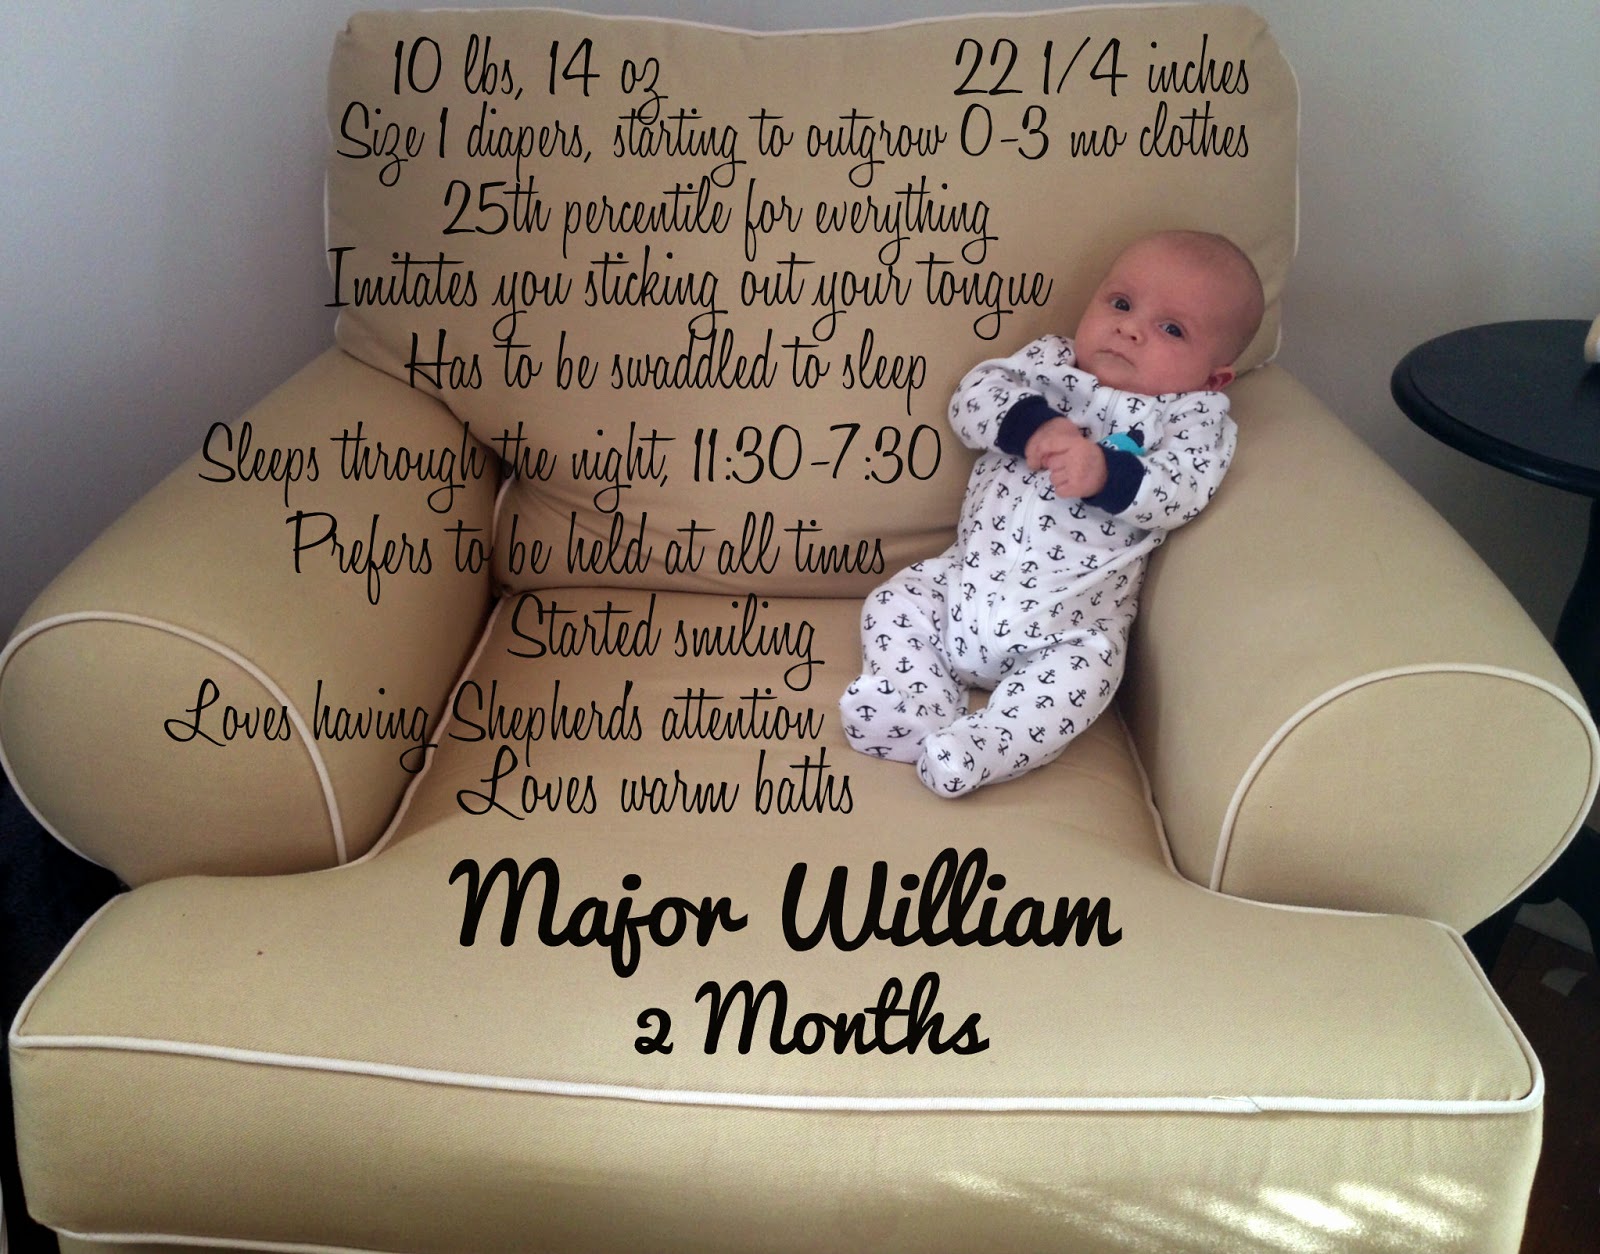 10 lbs, 14 oz 22 1/4 inches
Size 1 diapers, starting to outgrow 0-3 mo clothes
25th percentile for everything
Imitates you sticking out your tongue
Has to be swaddled to sleep
Sleeps through the night, 11:30-7:30
Prefers to be held at all times
Started smiling
Loves having Shepherd's attention
Loves warm baths
Major William
2 Months